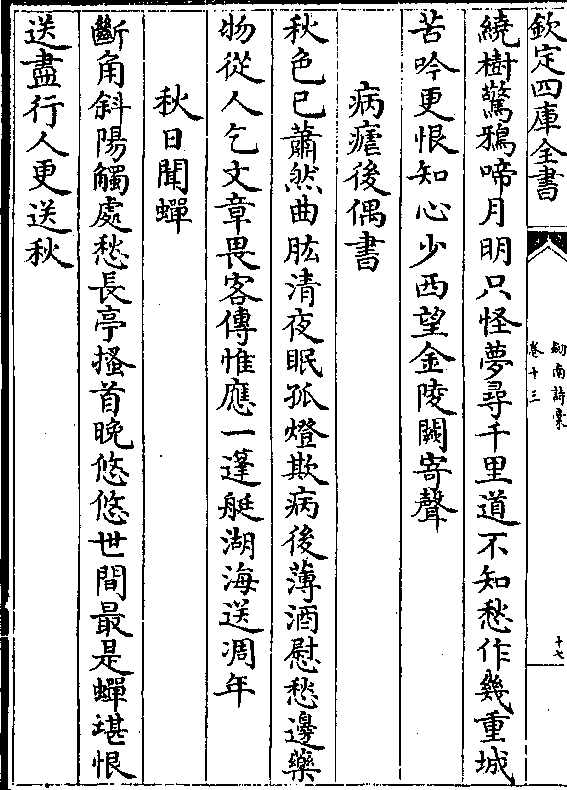 欽定四庫全書
劍南詩稾
卷十三
十七
繞樹驚鴉啼月明只怪夢尋千里道不知愁作幾重城
苦吟更恨知心少西望金陵闕寄聲
病瘧後偶書
秋色已蕭然曲肱清夜眠孤燈欺病後薄酒慰愁邊藥
物從人乞文章畏客傳惟應一蓬艇湖海送凋年
秋日聞蟬
斷角斜陽觸處愁長亭搔首晚悠悠世間最是蟬堪恨
送盡行人更送秋